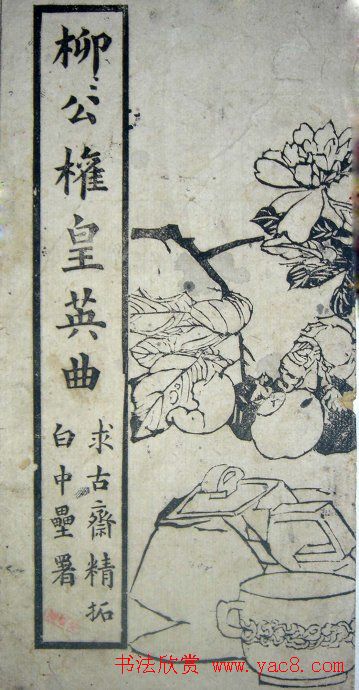 柳公權皇英曲
求古齋精拓
白中壘署
书法欣赏 www.yac8.com